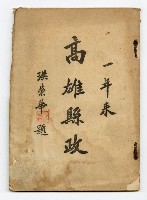 一年來
高雄縣政
洪榮華題